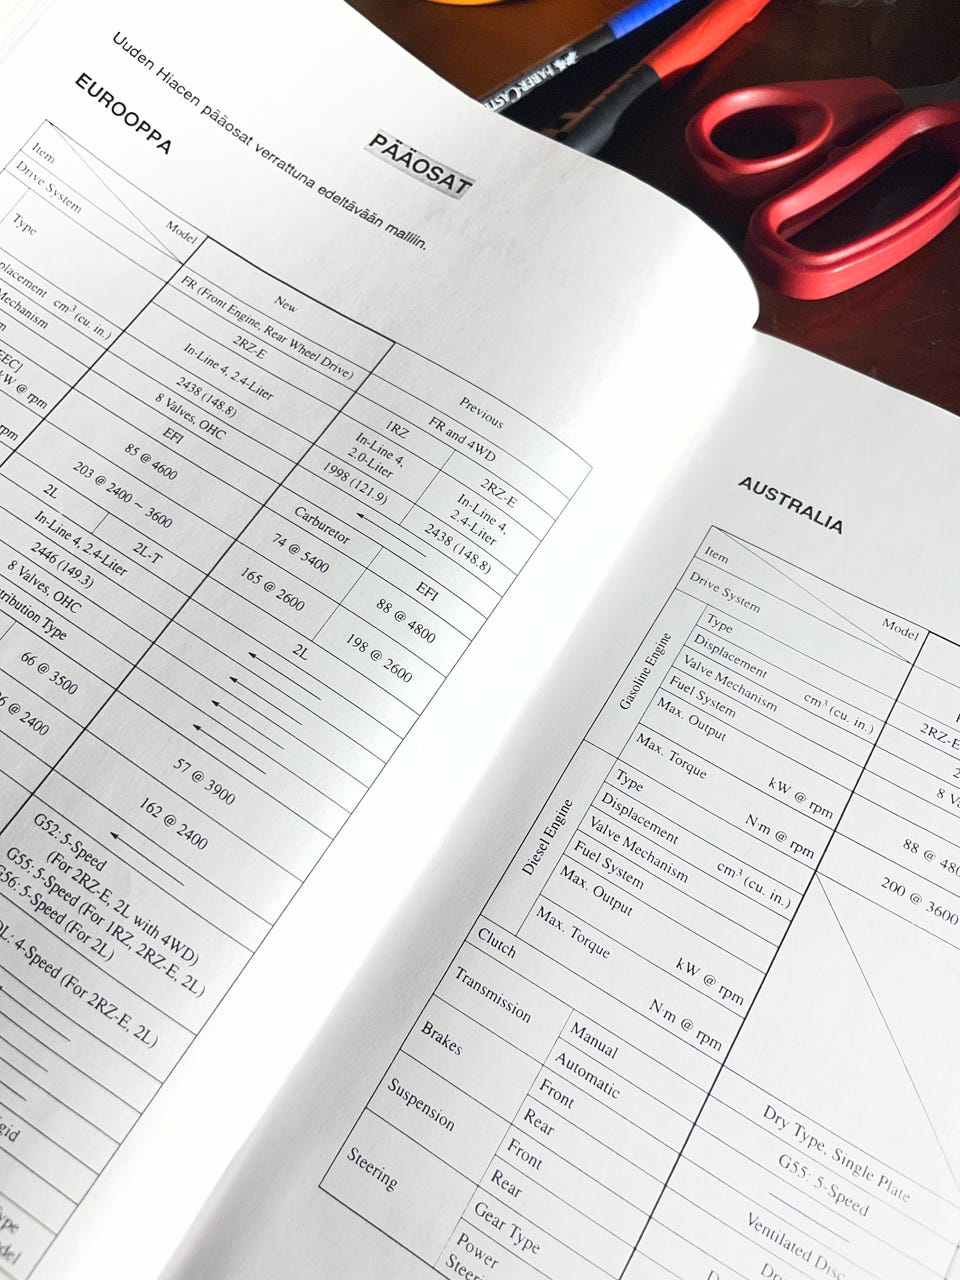 PÄÄOSAT
Uuden Hiacen pääosat verrattuna edeltävään malliin.
EUROOPPA
Item
Model
New
Previous
Drive System
FR (Front Engine, Rear Wheel Drive)
FR and 4WD
Type
2RZ-E
In-Line 4, 2.4-Liter
1RZ
In-Line 4,
2.0-Liter
2RZ-E
In-Line 4,
2.4-Liter
cm³ (cu. in.)
2438 (148.8)
1998 (121.9)
2438 (148.8)
Mechanism
8 Valves, OHC
EFI
Carburetor
EFI
kW @ rpm
85 @ 4600
74 @ 5400
88 @ 4800
rpm
203 @ 2400 ~ 3600
165 @ 2600
198 @ 2600
2L
2L-T
2L
In-Line 4, 2.4-Liter
2446 (149.3)
8 Valves, OHC
Type
66 @ 3500
57 @ 3900
@ 2400
162 @ 2400
G52: 5-Speed
(For 2RZ-E, 2L with 4WD)
G55: 5-Speed (For 1RZ, 2RZ-E, 2L)
G56: 5-Speed (For 2L)
4-Speed (For 2RZ-E, 2L)
AUSTRALIA
Item
Model
Drive System
Gasoline Engine
Type
2RZ-E
Displacement cm³ (cu. in.)
Valve Mechanism
8
Fuel System
Max. Output kW @ rpm
88 @
Max. Torque N·m @ rpm
200 @ 3600
Diesel Engine
Type
Displacement cm³ (cu. in.)
Valve Mechanism
Fuel System
Max. Output kW @ rpm
Max. Torque N·m @ rpm
Clutch
Dry Type, Single Plate
Transmission
Manual
G55: 5-Speed
Automatic
Brakes
Front
Ventilated
Rear
Suspension
Front
Rear
Steering
Gear Type
Power
FABER-CASTELL